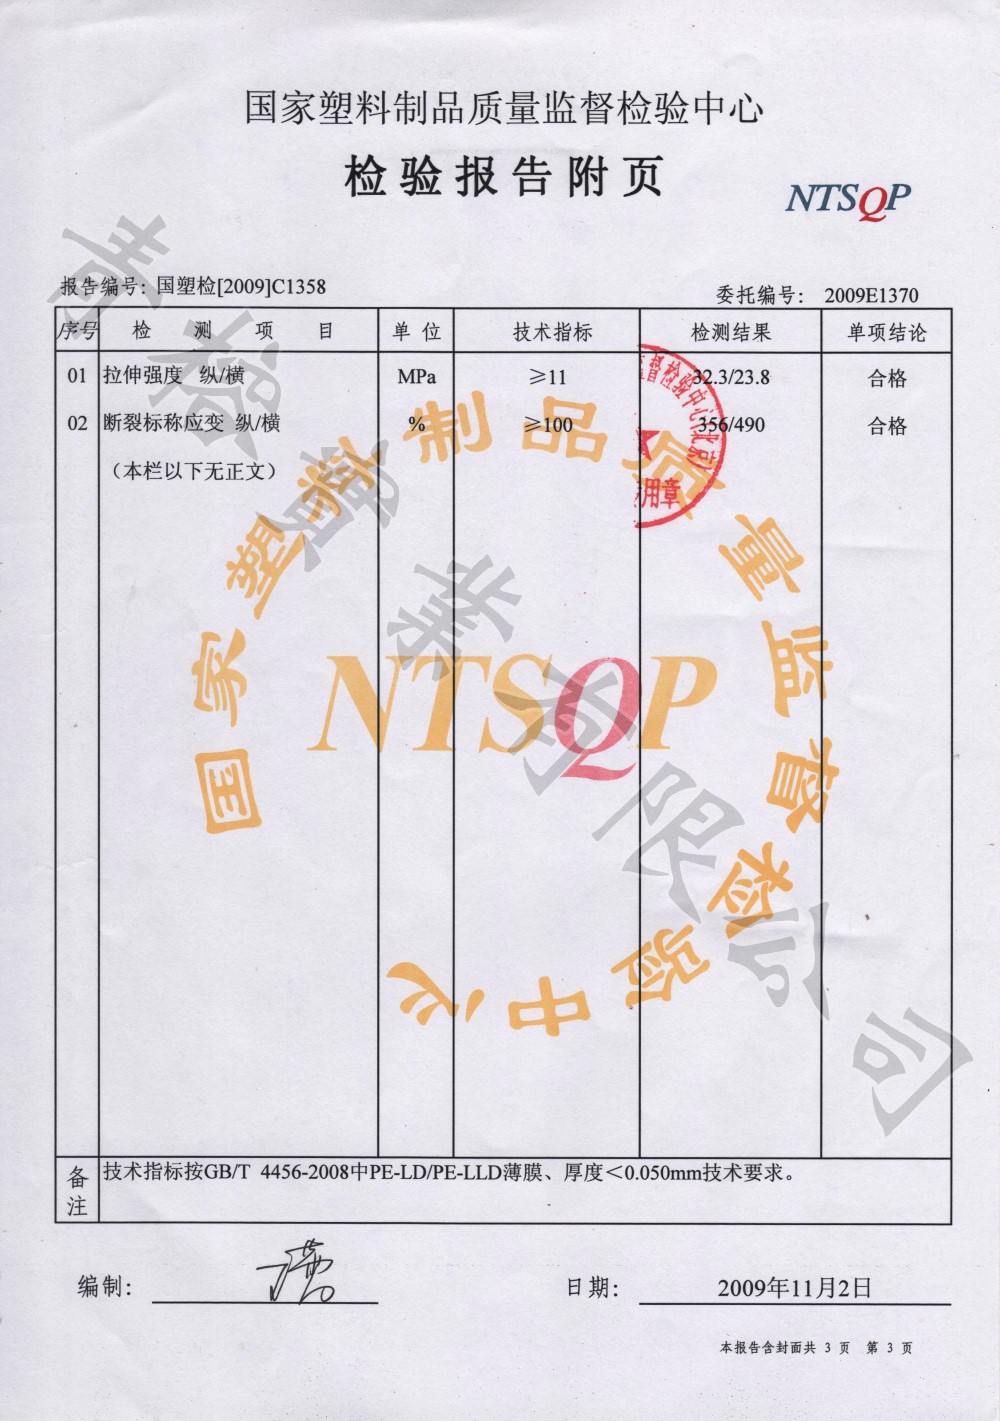 国家塑料制品质量监督检验中心
检验报告附页
NTSQP
报告编号：国塑检[2009]C1358
委托编号： 2009E1370
序号 检 测 项 目 单 位 技术指标 检测结果 单项结论
01 拉伸强度 纵/横 MPa ≥11 32.3/23.8 合格
02 断裂标称应变 纵/横 % ≥100 356/490 合格
（本栏以下无正文）
监督检验中心(北京)
用章
国家塑料制品质量监督检验中心
NTSQP
有限公司
备注 技术指标按GB/T 4456-2008中PE-LD/PE-LLD薄膜、厚度＜0.050mm技术要求。
编制： 日期： 2009年11月2日
本报告含封面共 3 页 第 3 页